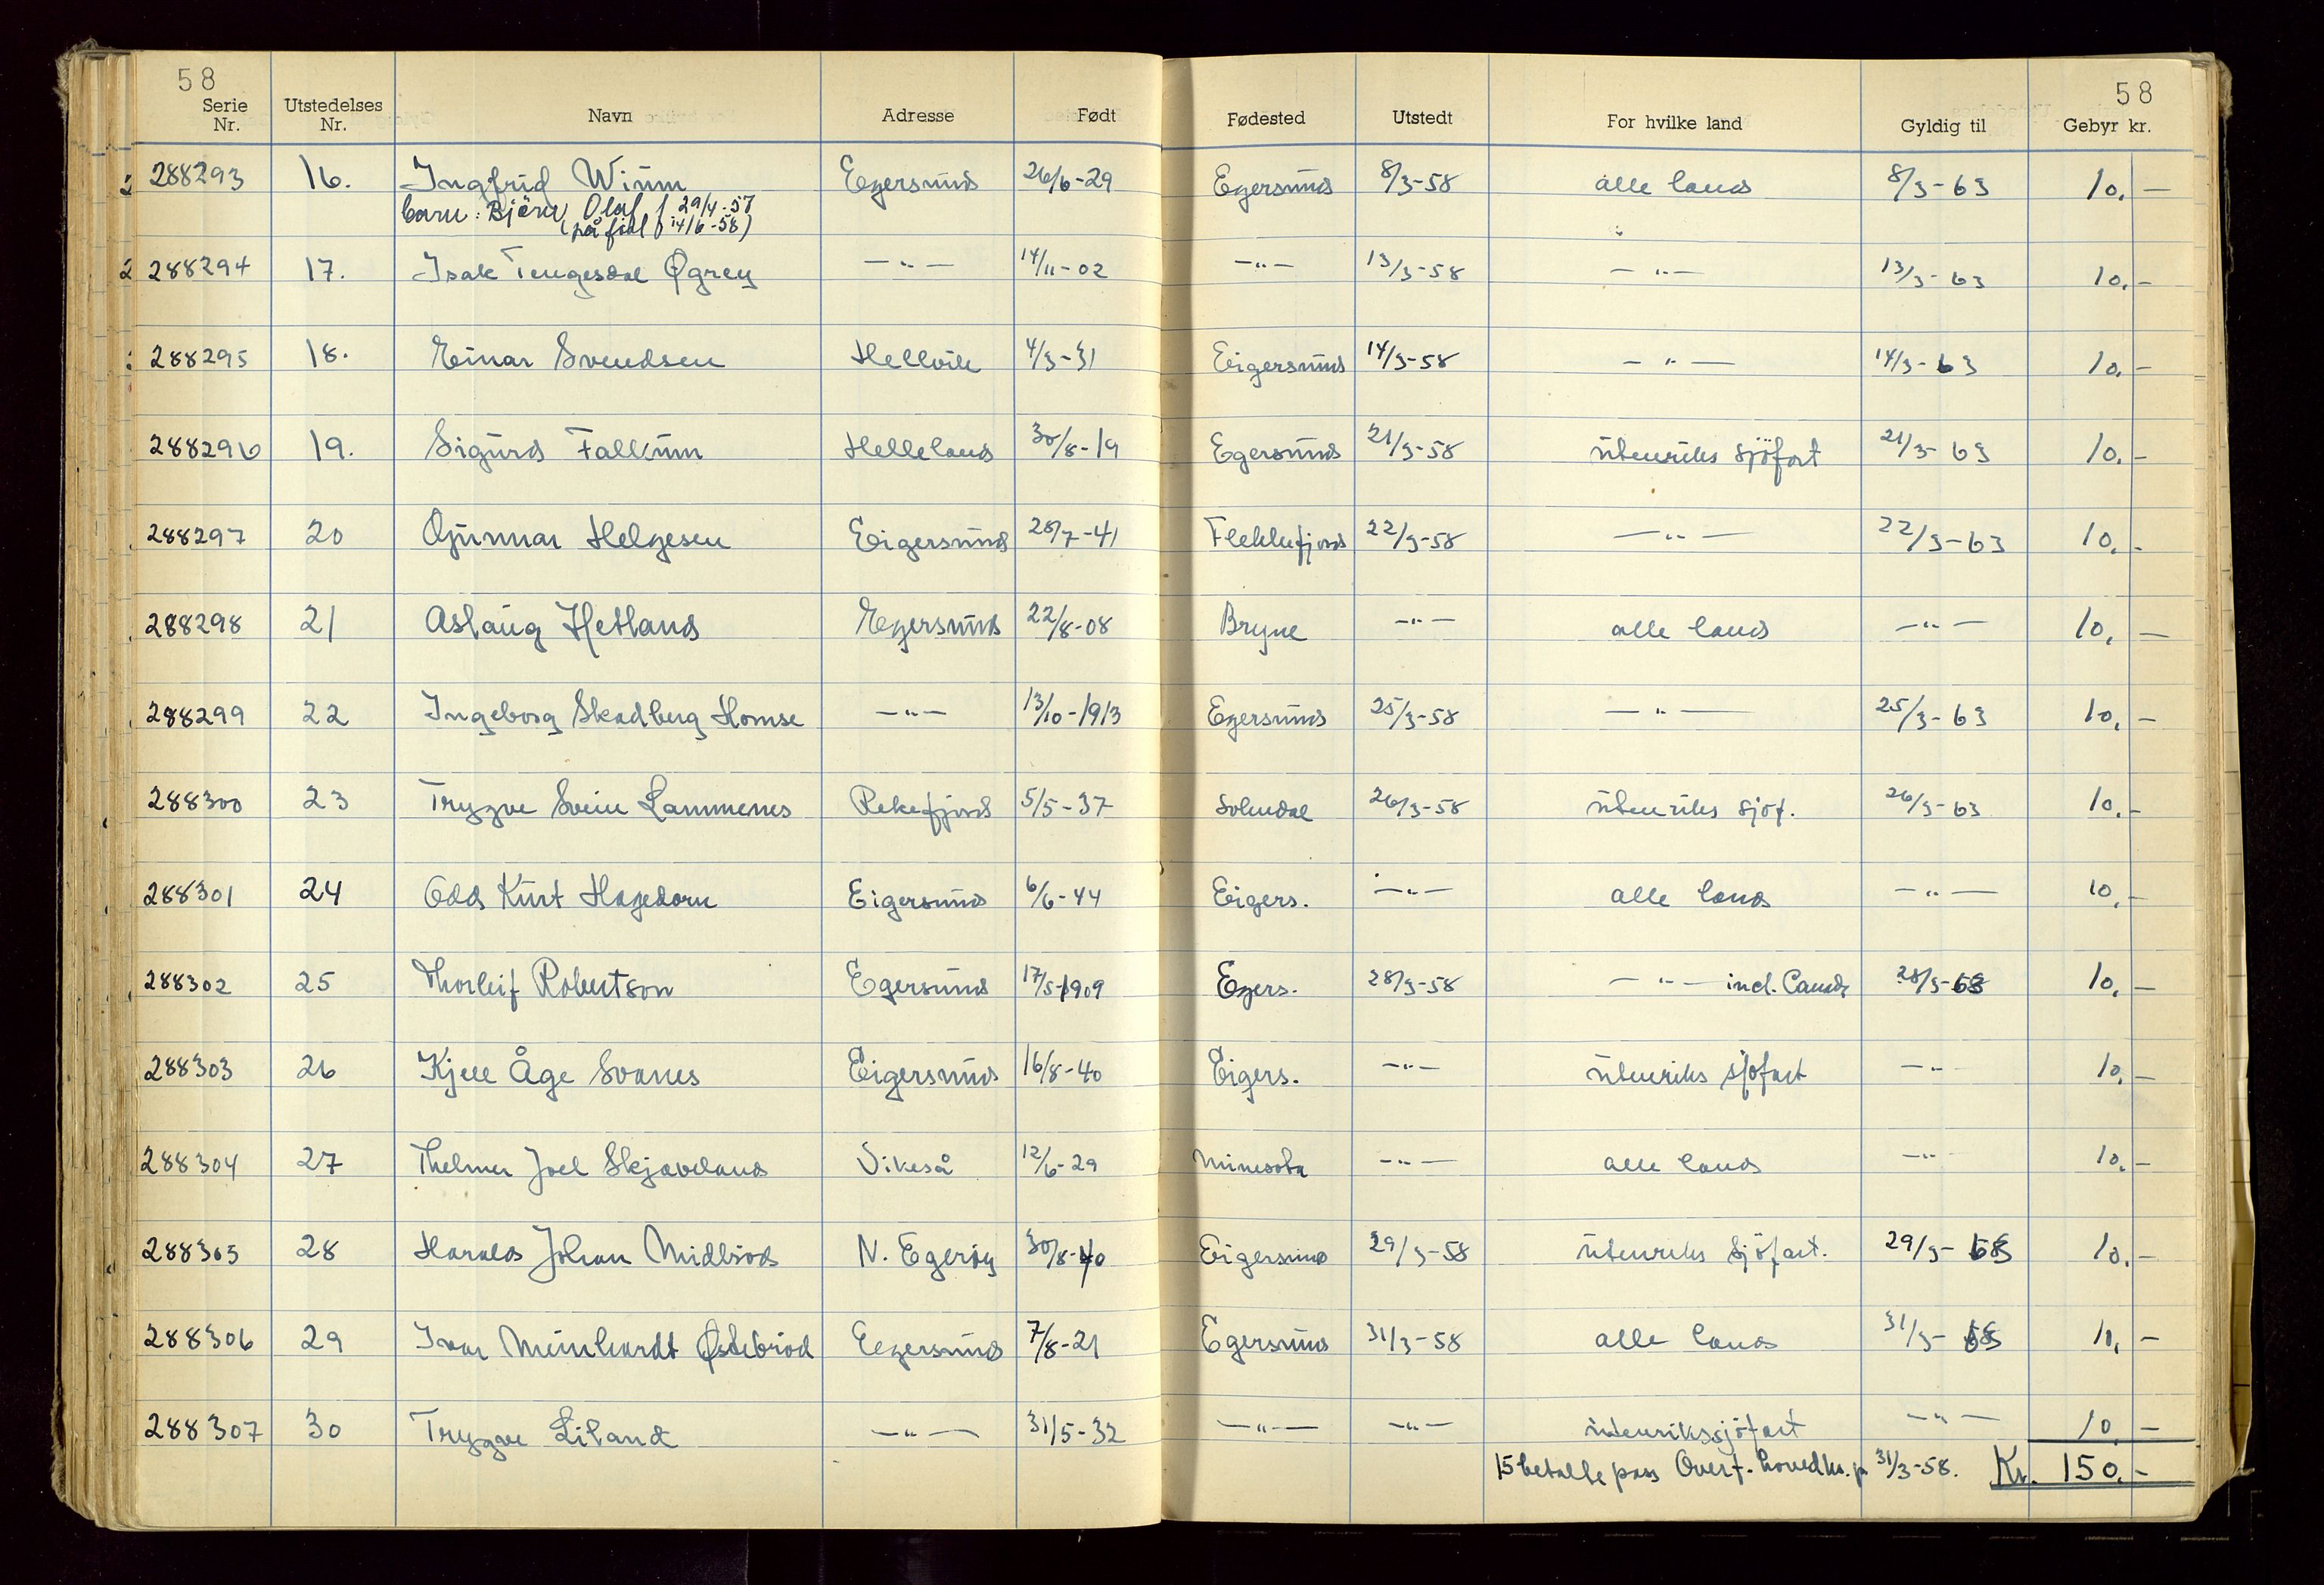 58 58
Serie Nr. Utstedelses Nr. Navn Adresse Født Fødested Utstedt For hvilke land Gyldig til Gebyr kr.
288293 16. Ingfrid Winm Egersund 26/6-29 Egersund 8/3-58 alle land 8/3-63 10.-
barn: Björn Olaf f 29/4-57
(påført 14/6-58)
288294 17. Isak Tengesdal Øgrey -"- 14/11-02 -"- 13/3-58 -"- 13/3-63 10.-
288295 18. Einar Svendsen Hellvik 4/3-31 Eigersund 14/3-58 -"- 14/3-63 10.-
288296 19. Sigurd Falkum Helleland 30/8-19 Egersund 21/3-58 utenriks sjöfart 21/3-63 10.-
288297 20 Gunnar Helgesen Eigersund 28/7-41 Flekkefjord 22/3-58 -"- 22/3-63 10.-
288298 21 Aslaug Hetland Egersund 22/8-08 Bryne -"- alle land -"- 10.-
288299 22 Ingeborg Skadberg Homse -"- 13/10-1913 Egersund 25/3-58 -"- 25/3-63 10.-
288300 23 Trygve Svein Lammenes Rekefjord 5/5-37 Sokndal 26/3-58 utenriks sjöf. 26/3-63 10.-
288301 24 Odd Kurt Hagedorn Eigersund 6/6-44 Eigers. -"- alle land -"- 10.-
288302 25 Thorleif Robertson Egersund 17/5-1909 Egers. 28/3-58 -"- incl. Canada 28/3-63 10.-
288303 26 Kjell Åge Svanes Eigersund 16/8-40 Eigers. -"- utenriks sjöfart -"- 10.-
288304 27 Thelmer Joel Skjæveland Vikeså 12/6-29 Minesota -"- alle land -"- 10.-
288305 28 Harald Johan Midbröd N. Egeröy 30/8-40 Eigersund 29/3-58 utenriks sjöfart. 29/3-63 10.-
288306 29 Ivar Meinhardt Østebröd Egersund 7/8-21 Egersund 31/3-58 alle land 31/3-63 10.-
288307 30 Trygve Liland -"- 31/5-32 -"- -"- utenrikssjöfart -"- 10.-
15 betalte pass Overf. hovedks. p 31/3-58. Kr. 150.-